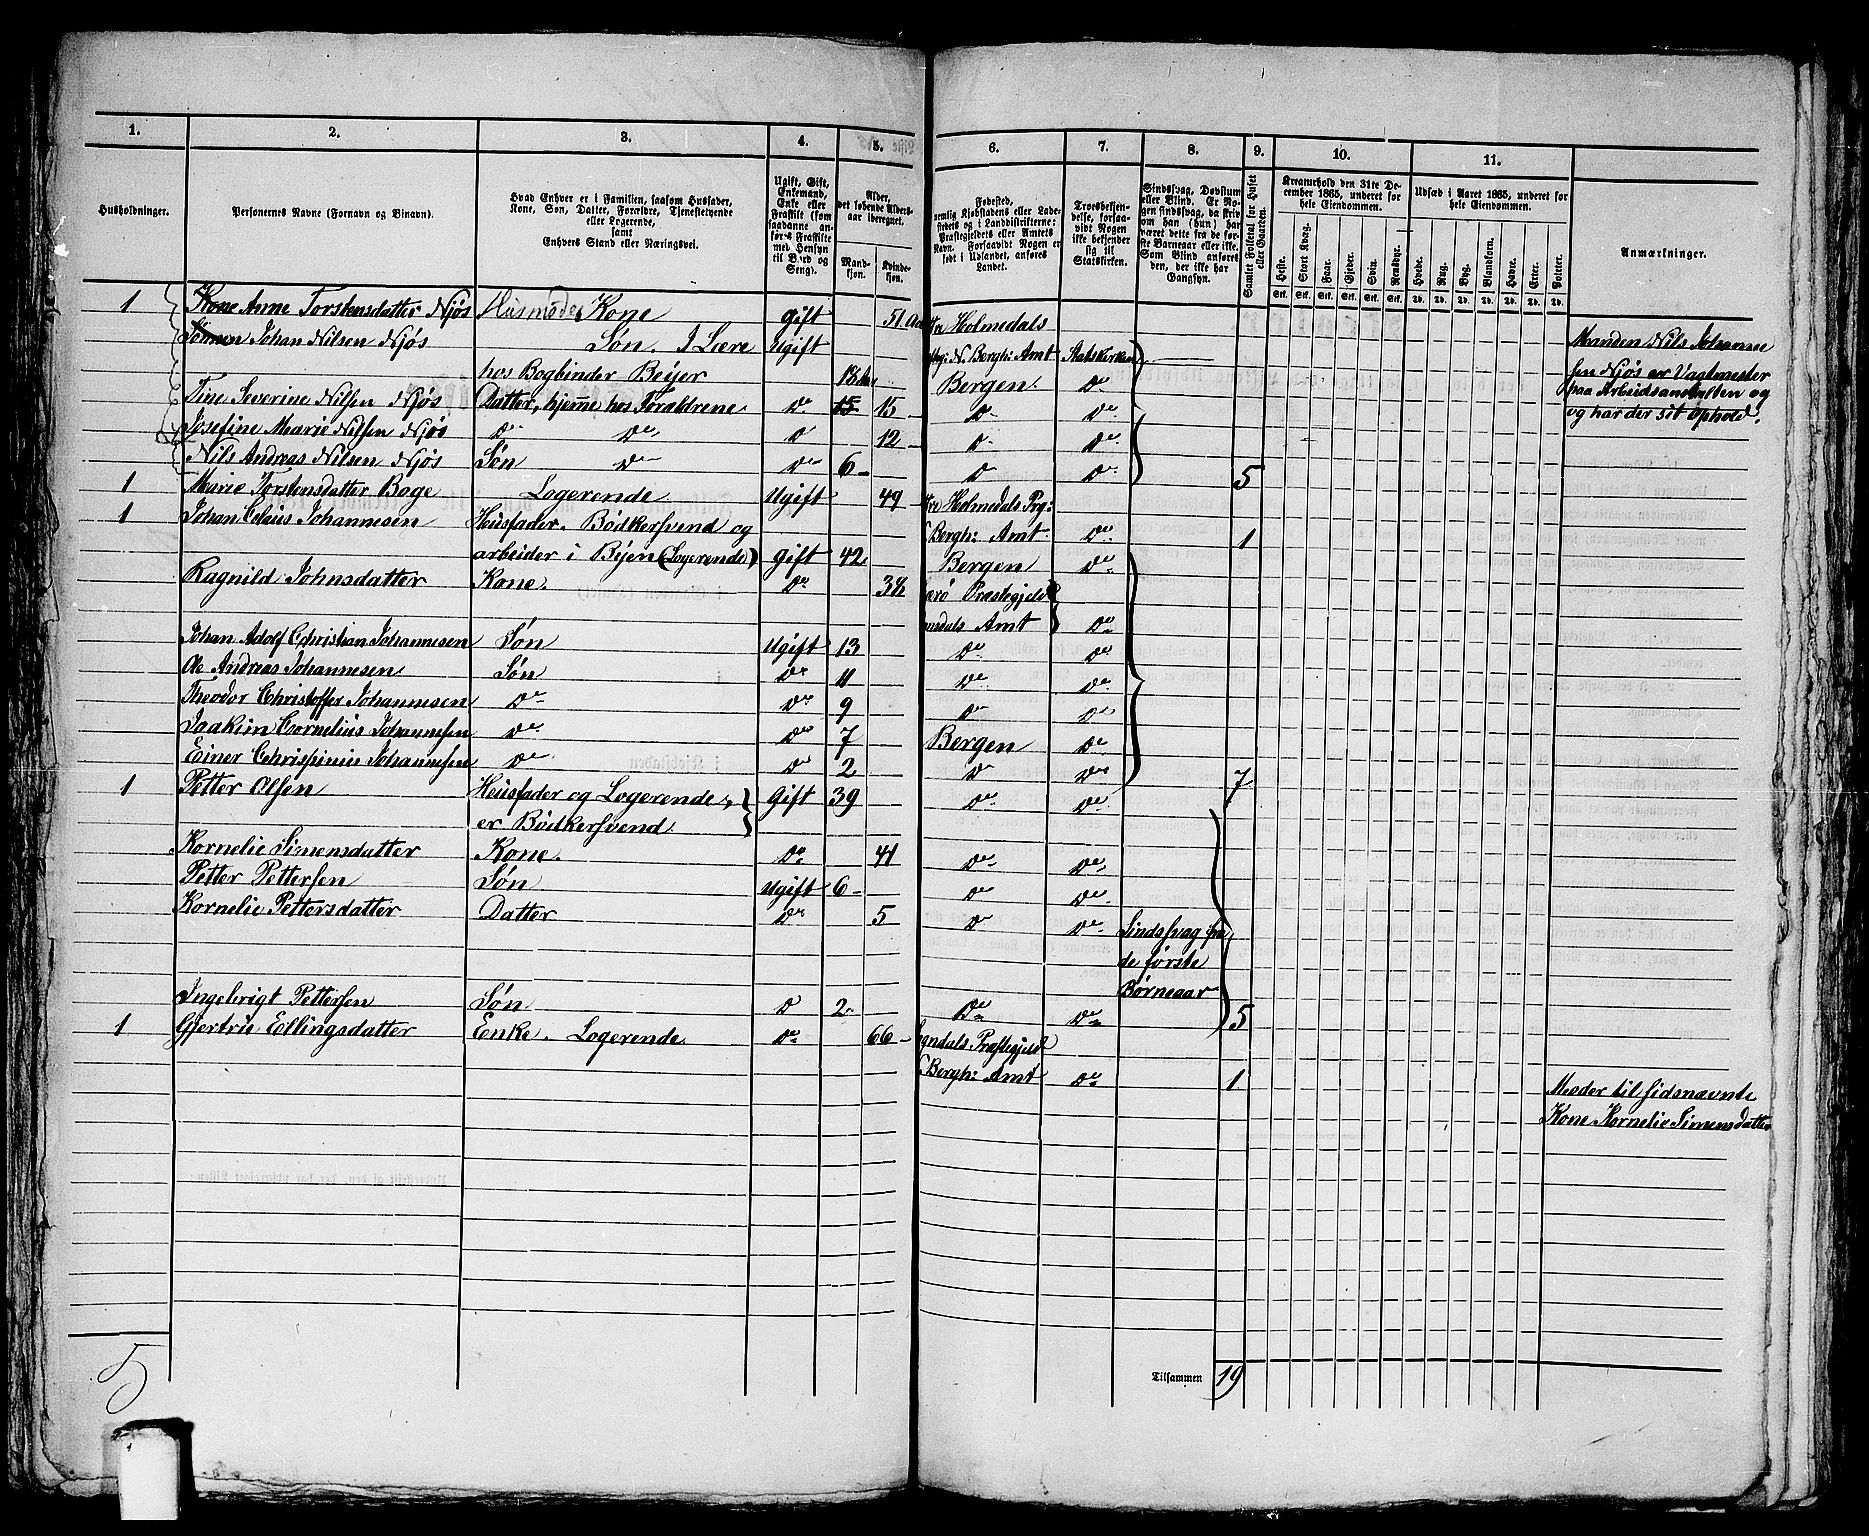 1. 2. 3. 4. 5. 6. 7. 8. 9. 10. 11.
Husholdninger.
Personernes Navne (Fornavn og Binavn).
Hvad Enhver er i Familien, saasom Husfader,
Kone, Søn, Datter, Forældre, Tjenestetyende
eller Logerende,
samt
Enhvers Stand eller Næringsvei.
Ugift, Gift,
Enkemand,
Enke eller
Fraskilt (som
saadanne an-
føres Fraskilte
med Hensyn
til Bord og
Seng).
Alder,
det løbende Alders-
aar iberegnet.
Mand-
kjøn.
Kvinde-
kjøn.
Fødested,
nemlig Kjøbstadens eller Lade-
stedets og i Landdistrikterne:
Præstegjeldets eller Amtets
Navn. Forsaavidt Nogen er
født i Udlandet, anføres
Landet.
Troesbekjen-
delse, forsaa-
vidt Nogen
ikke bekjender
sig til
Statskirken.
Sindssvag, Døvstum
eller Blind. Er No-
gen sindssvag, da skriv
om han (hun) har
været dette fra de før-
ste Barneaar eller ikke.
Som Blind anføres
den, der ikke har
Gangsyn.
Samlet Folketal for Huset
eller Gaarden.
Kreaturhold den 31te De-
cember 1865, underet for
hele Eiendommen.
Heste. Stort Kvæg. Faar. Gjeder. Svin. Rensdyr.
Stk. Stk. Stk. Stk. Stk. Stk.
Udsæd i Aaret 1865, underet for
hele Eiendommen.
Hvede. Rug. Byg. Blandkorn. Havre. Erter. Poteter.
Td. Td. Td. Td. Td. Td. Td.
Anmærkninger.
1 Kone Anne Torstensdatter Njøs Husmoder Kone gift 51 Holmedals
Sønnen Johan Nilsen Njøs Søn. I Lære Ugift N. Bergh: Amt Statskirken
hos Bogbinder Beijer 18 Bergen. Do
Tine Severine Nilsen Njøs Datter, hjemme hos Foraldrene Do 15 15 Do Do
Josefine Marie Nilsen Njøs Do Do D 12 D Do
Nils Andreas Nilsen Njøs Søn Do Do 6 D Do 5
Manden Nils Johanne
sen Njøs er Vagtmester
paa Arbeidsanstalten og
og har der sit Ophold.
1 Marie Torstensdatter Boge Logerende Ugift 49 Holmedals Prg:
Bergh: Amt Do 1
1 Johan Claus Johannesen Husfader. Bødkersvend og
arbeider i Byen (Logerende) Gift 42 Bergen Do
Ragnild Johnsdatter Kone. Do 38 Præstegjeld
Amt Do
Johan Adolf Christian Johannesen Søn Ugift 13 Do Do
Ole Andreas Johannesen Søn Do 11 Do Do
Theodor Christoffer Johannesen Do Do 9 Do Do
Joakim Cornelius Johannesen Do Do 7 Bergen Do
Einer Chrispinius Johannesen Do Do 2 Do Do 7
1 Petter Olsen Husfader og Logerende, Gift 39 Do Do
er Bødkersvend
Kornelie Simensdatter Kone. Do 41 Do Do
Petter Pettersen Søn Ugift 6 Do Do
Kornelie Pettersdatter Datter Do 5 Do Do Sindssvag fra
de første
Børneaar
Ingebrigt Pettersen Søn D 2 Do Do 5
1 Gjertrus Ellingsdatter Enke. Logerende Do 66 Præstegjeld
Bergh: Amt Do 1
Moder til sidsnævnte
Kone Kornelie Simensdatter
Tilsammen 19
5